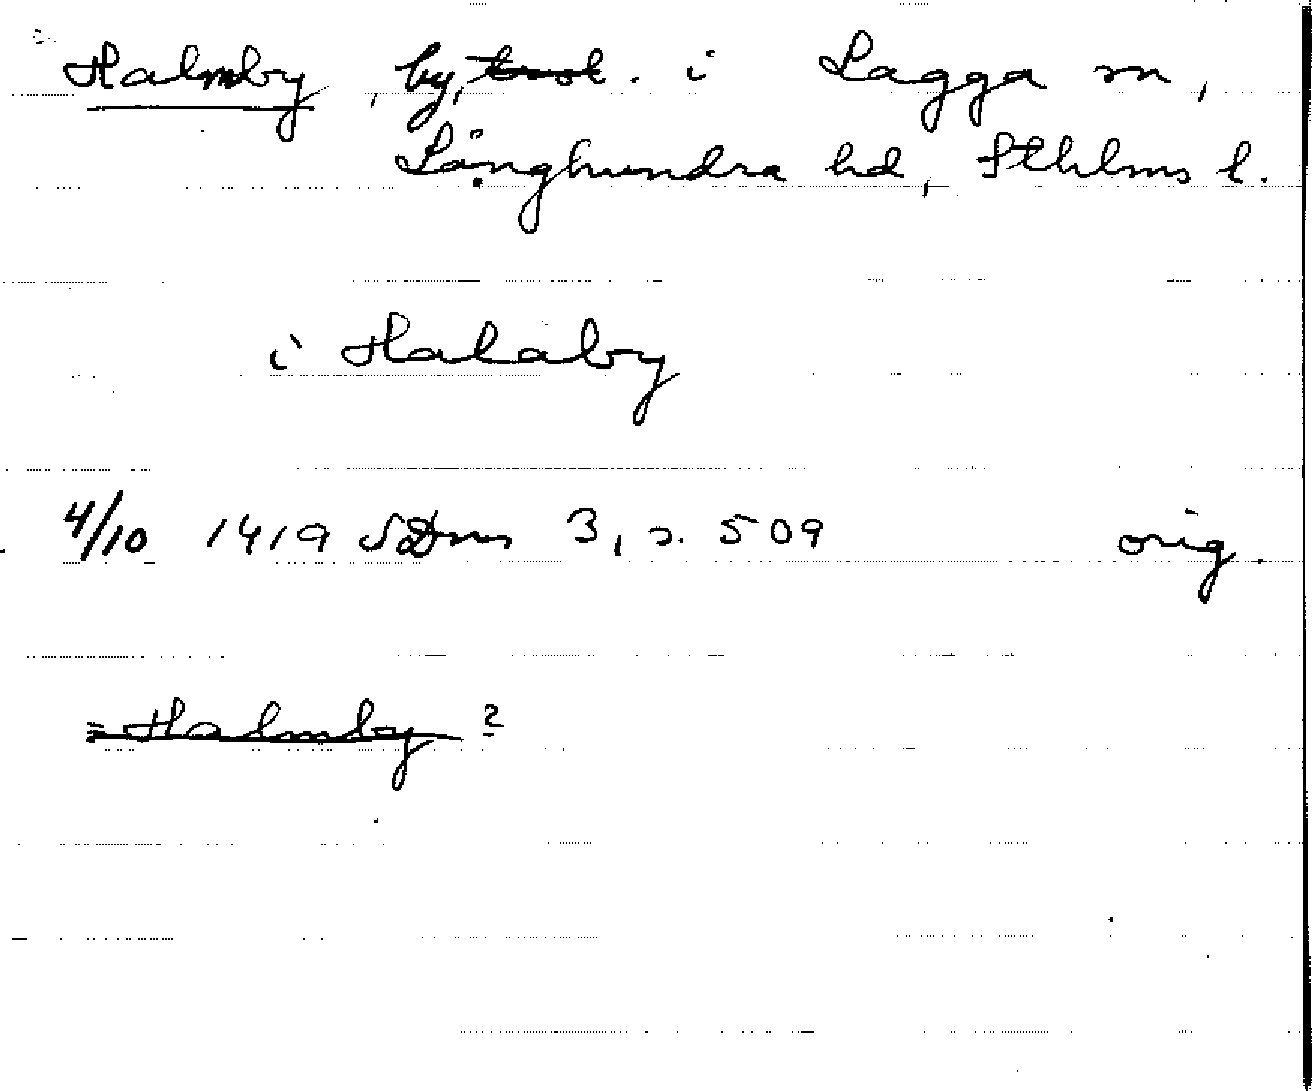 Halmby, by, trol. i Lagga sn,
Långhundra hd, Sthlms l.
i Halaby
4/10 1419 SDns 3, s. 509 orig.
= Halmby ?